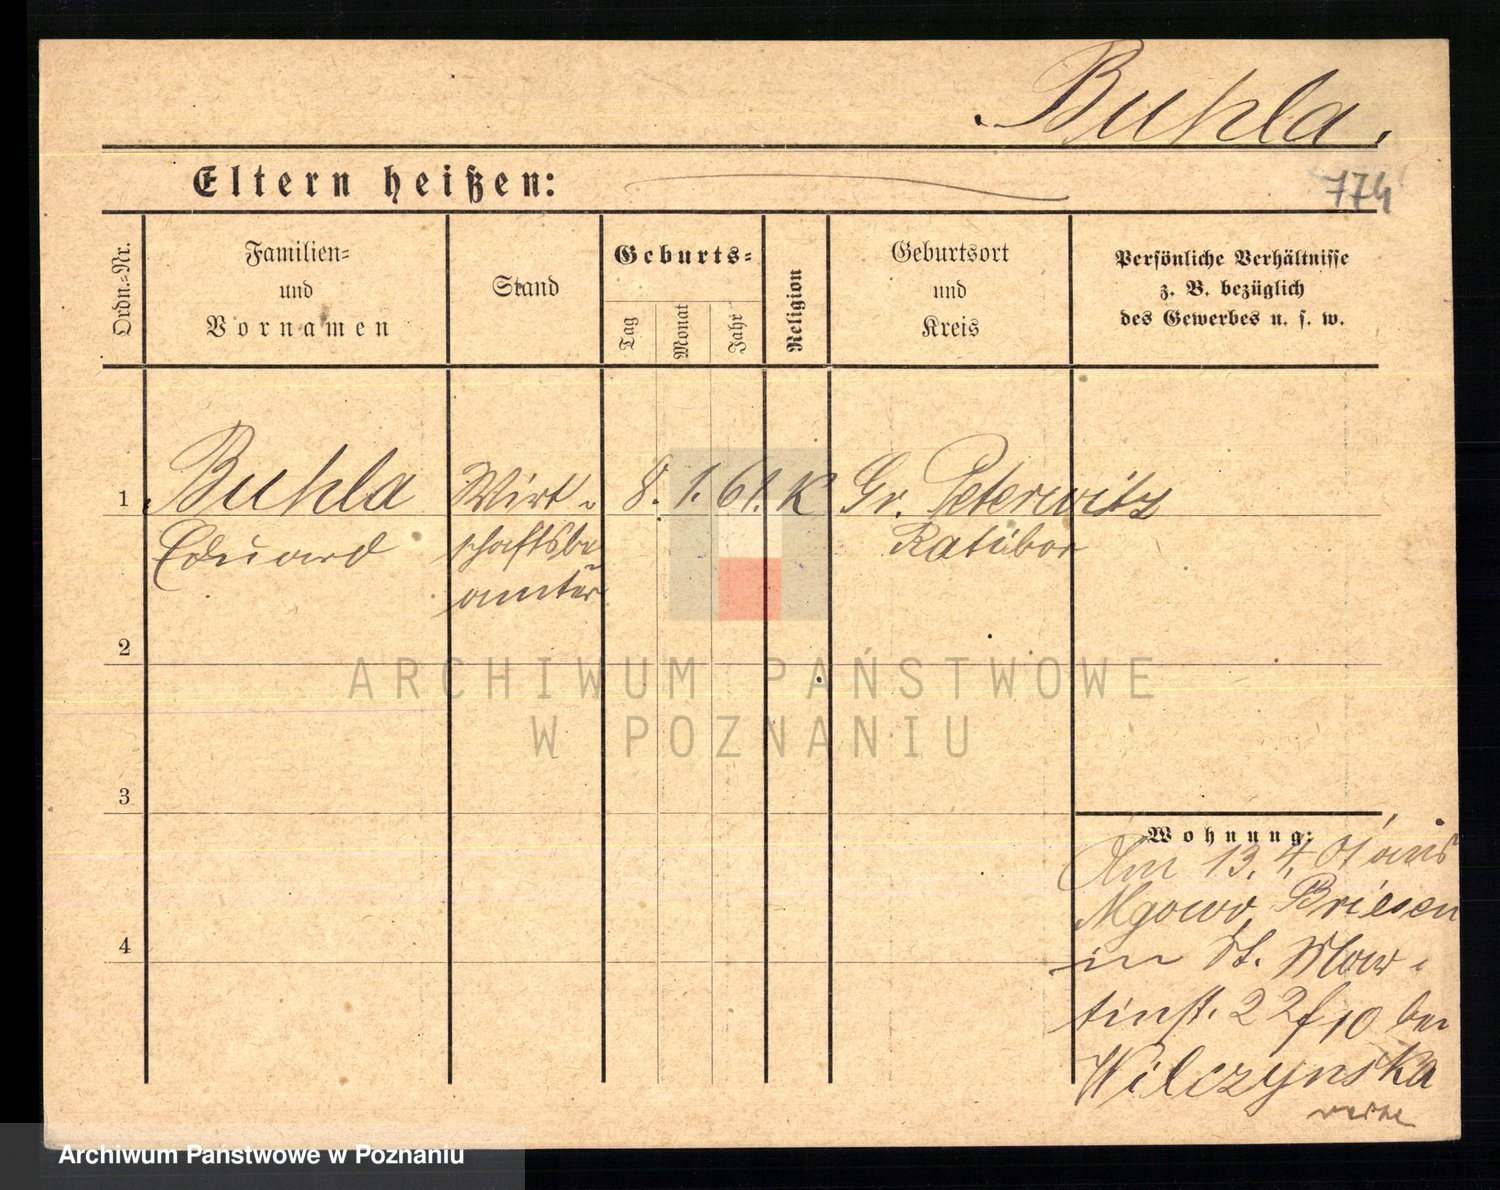 Buhla.
Eltern heißen:
774
Ordn.-Nr.
Familien-
und
Vornamen
Stand
Geburts-
Tag
Monat
Jahr
Religion
Geburtsort
und
Kreis
Persönliche Verhältnisse
z. B. bezüglich
des Gewerbes u. s. w.
1 Buhla Wirt- 8. 1. 61. K Gr. Peterwitz
Eduard schaftsbe Ratibor
amter
2
ARCHIWUM PAŃSTWOWE
W POZNANIU
3
Wohnung:
Am 13. 4. 01 aus
Mgowo, Briesen
in St. Mar-
tinst. 22 f 10 bei
Wilczynska
4
Archiwum Państwowe w Poznaniu